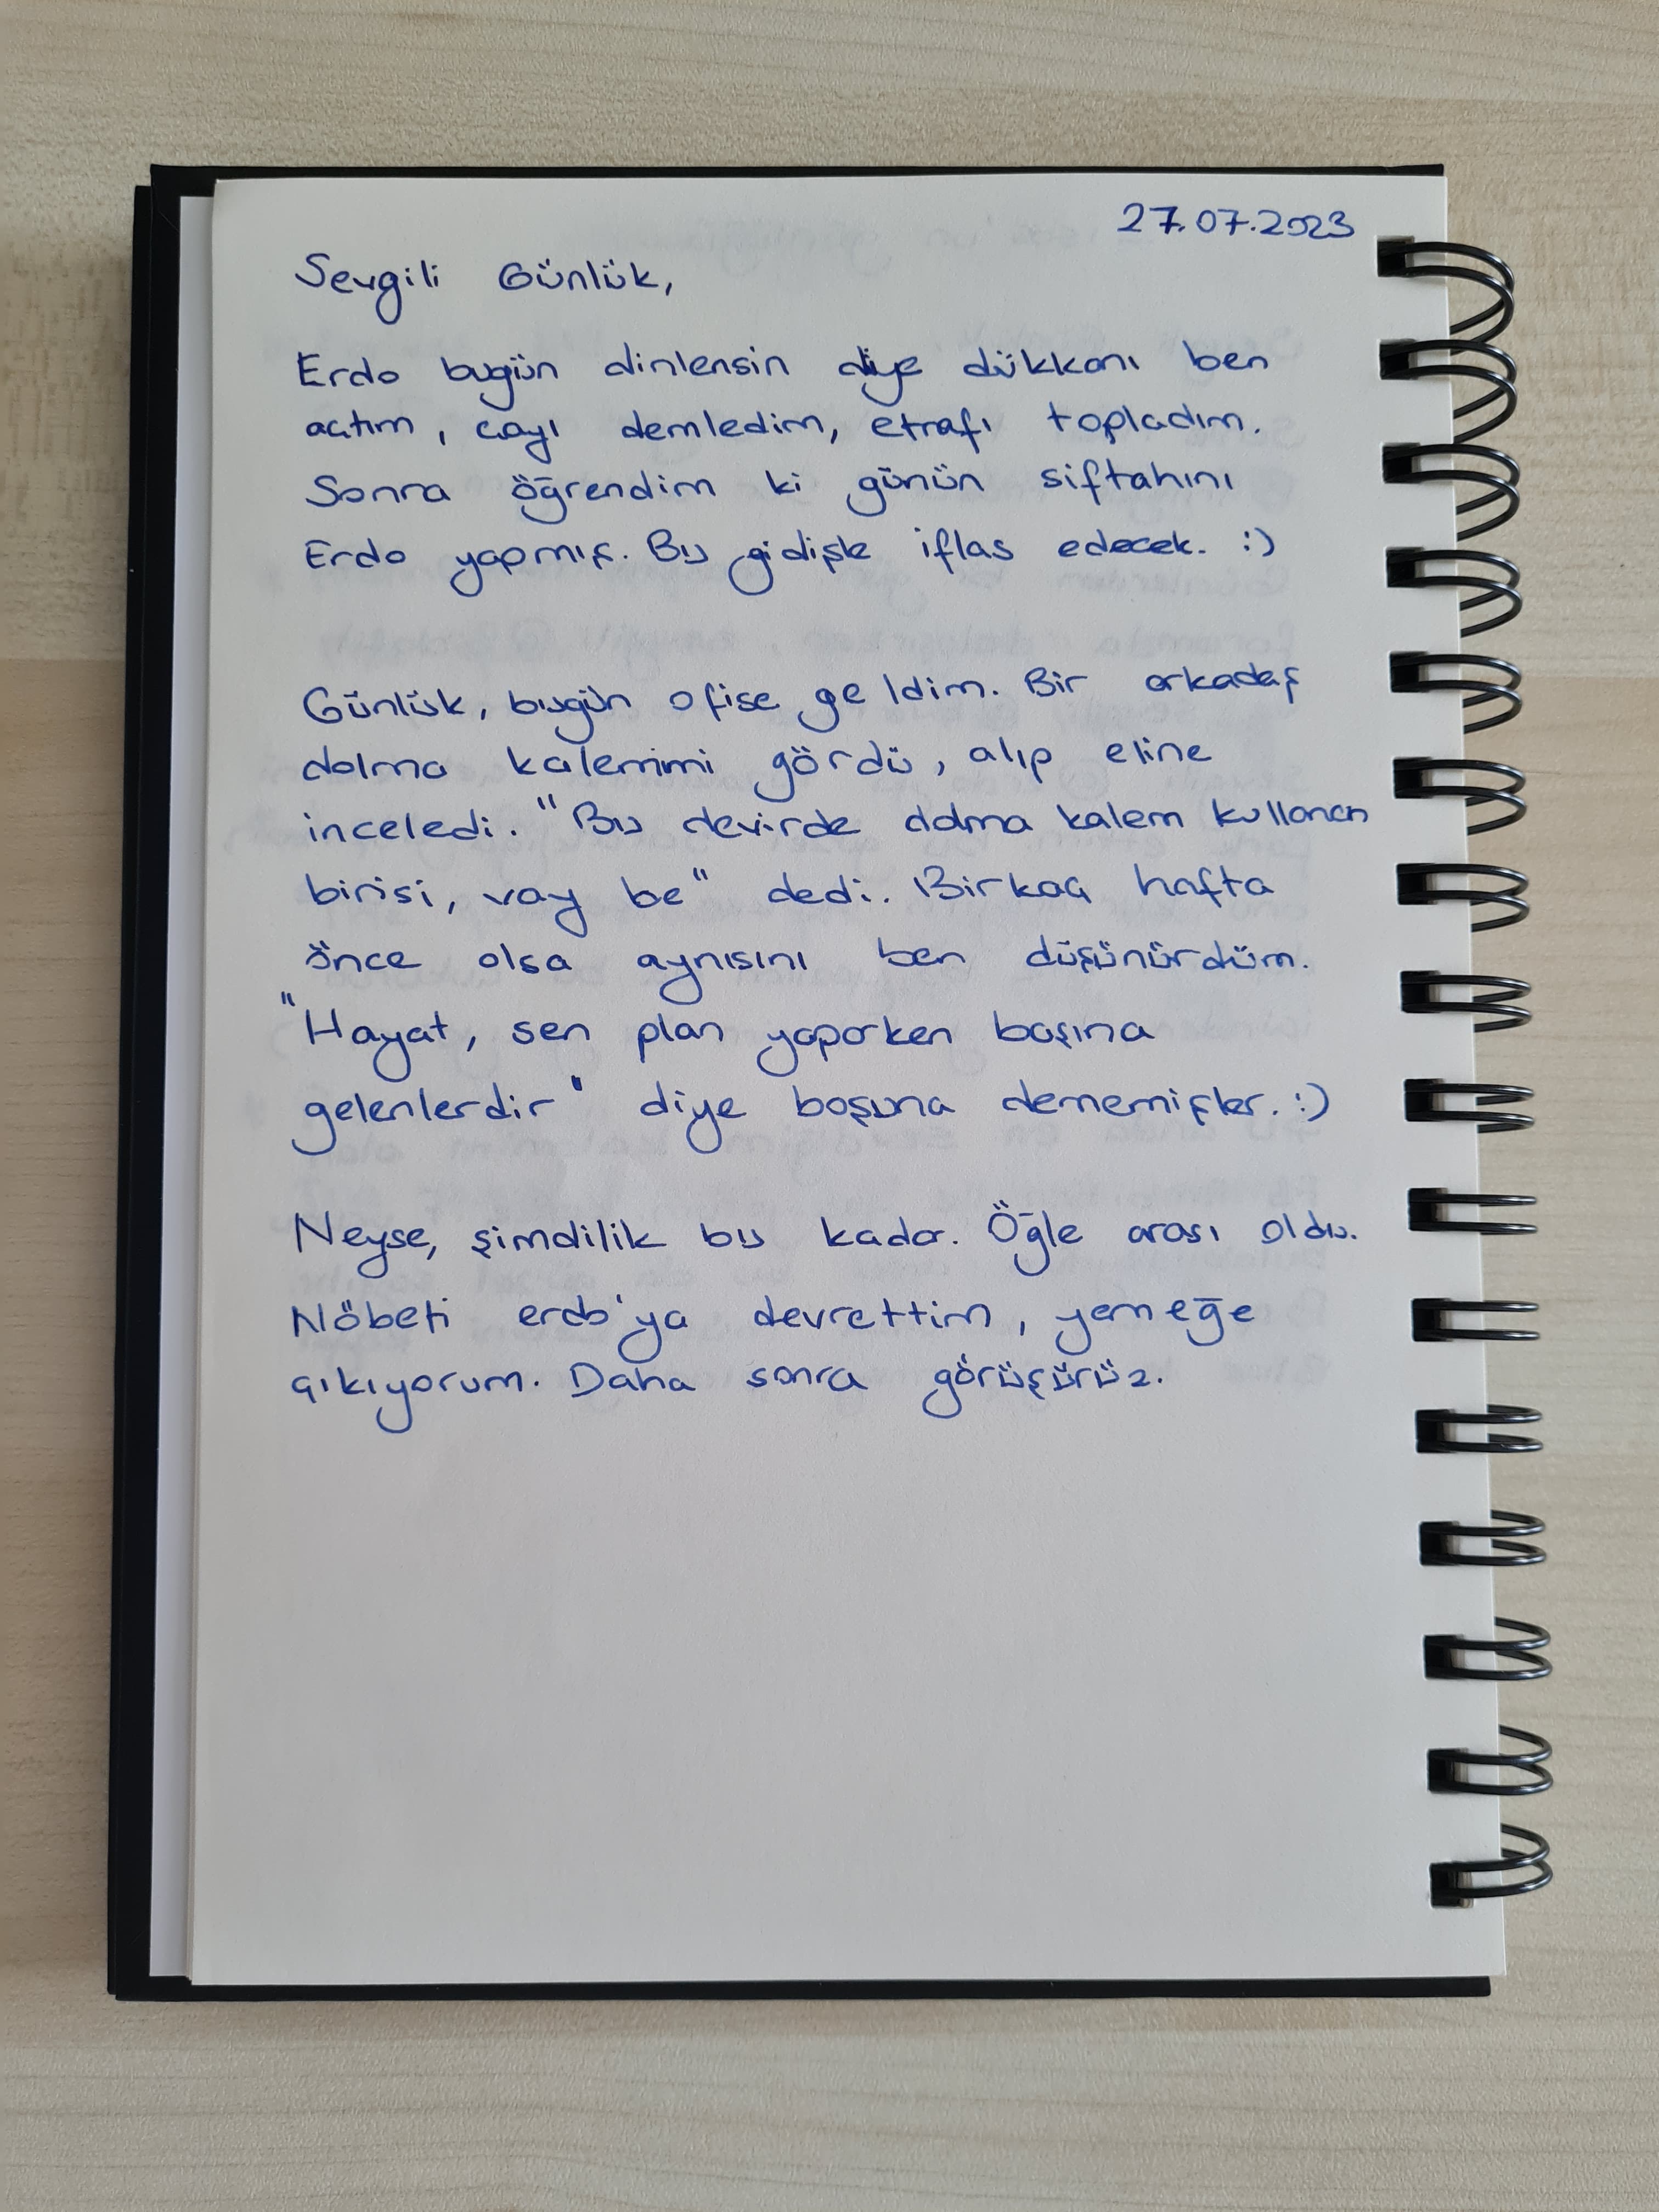 27.07.2023
Sevgili Günlük,
Erdo bugün dinlensin diye dükkanı ben
açtım, çayı demledim, etrafı topladım.
Sonra öğrendim ki günün siftahını
Erdo yapmış. Bu gidişle iflas edecek. :)
Günlük, bugün ofise geldim. Bir arkadaş
dolma kalemimi gördü, alıp eline
inceledi. "Bu devirde dolma kalem kullanan
birisi, vay be" dedi. Birkaç hafta
önce olsa aynısını ben düşünürdüm.
"Hayat, sen plan yaparken başına
gelenlerdir" diye boşuna dememişler. :)
Neyse, şimdilik bu kadar. Öğle arası oldu.
Nöbeti erdo'ya devrettim, yemeğe
çıkıyorum. Daha sonra görüşürüz.